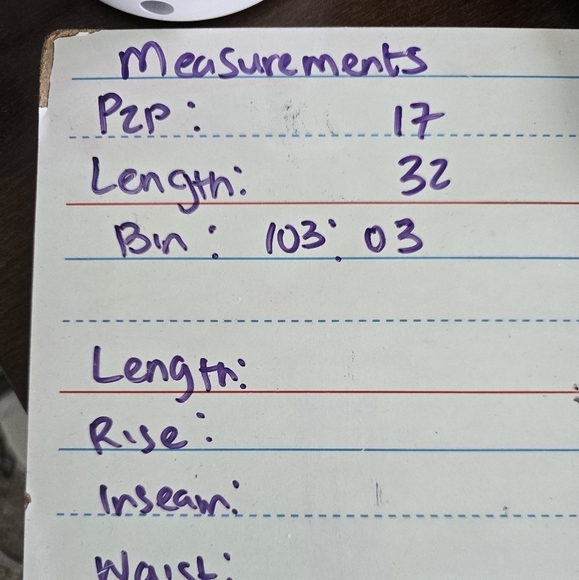 Measurements
P2P: 17
Length: 32
Bin: 103: 03
Length:
Rise:
Inseam:
Waist: